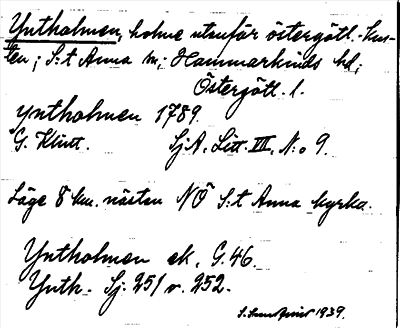 Yntholmen, holme utanför östergötl.-kus-
ten; S:t Anna sn; Hammarkinds hd;
Östergötl. l.
Yntholmen 1789.
G. Klint. SjA. Litt. III, N:o 9.
Läge 8 km. nästan NÖ S:t Anna kyrka.
Yntholmen ek. G. 46.
Ynth. Sj. 251 v. 252.
1939.